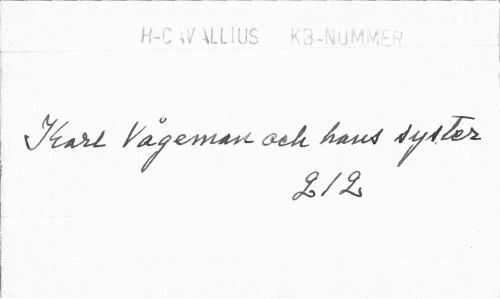 H-CAVALLIUS KB-NUMMER
Karl Vågeman och hans syster
212